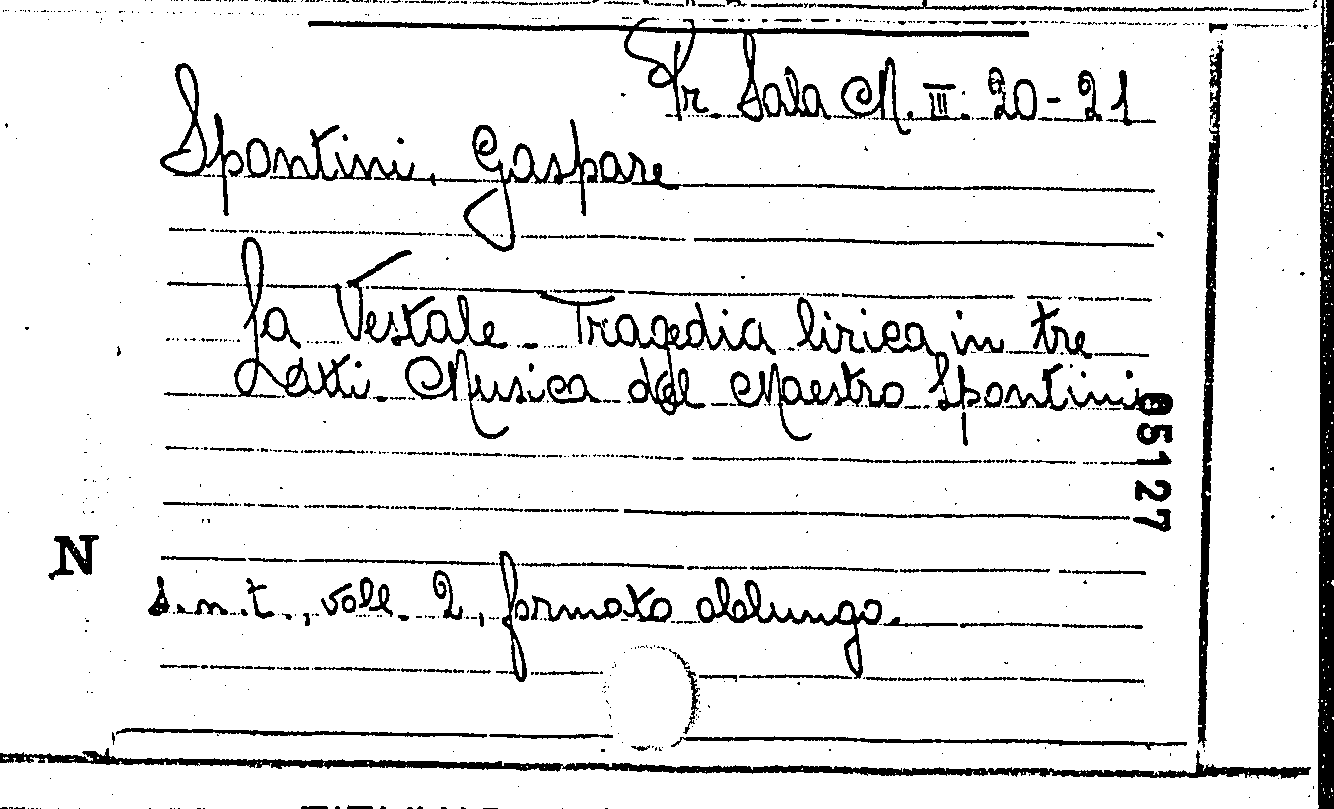 Fr. Sala M. III. 20-21
Spontini, Gaspare
La Vestale - Tragedia lirica in tre
atti. Musica del Maestro Spontini
05127
N
s.n.t., voll. 2, formato oblungo.